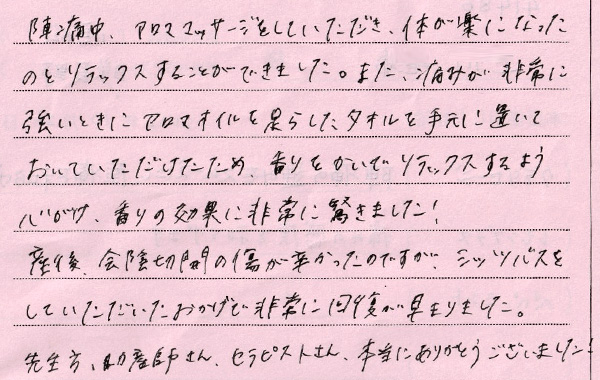 陣痛中、アロママッサージをしていただき、体が楽になった
のとリラックスすることができました。また、痛みが非常に
強いときにアロマオイルを足らしたタオルを手元に置いて
おいていただけたため、香りをかいでリラックスするよう
心がけ、香りの効果に非常に驚きました!
産後、会陰切開の傷が辛かったのですが、シッツバスを
していただいたおかげで非常に回復が早まりました。
先生方、助産師さん、セラピストさん、本当にありがとうございました!